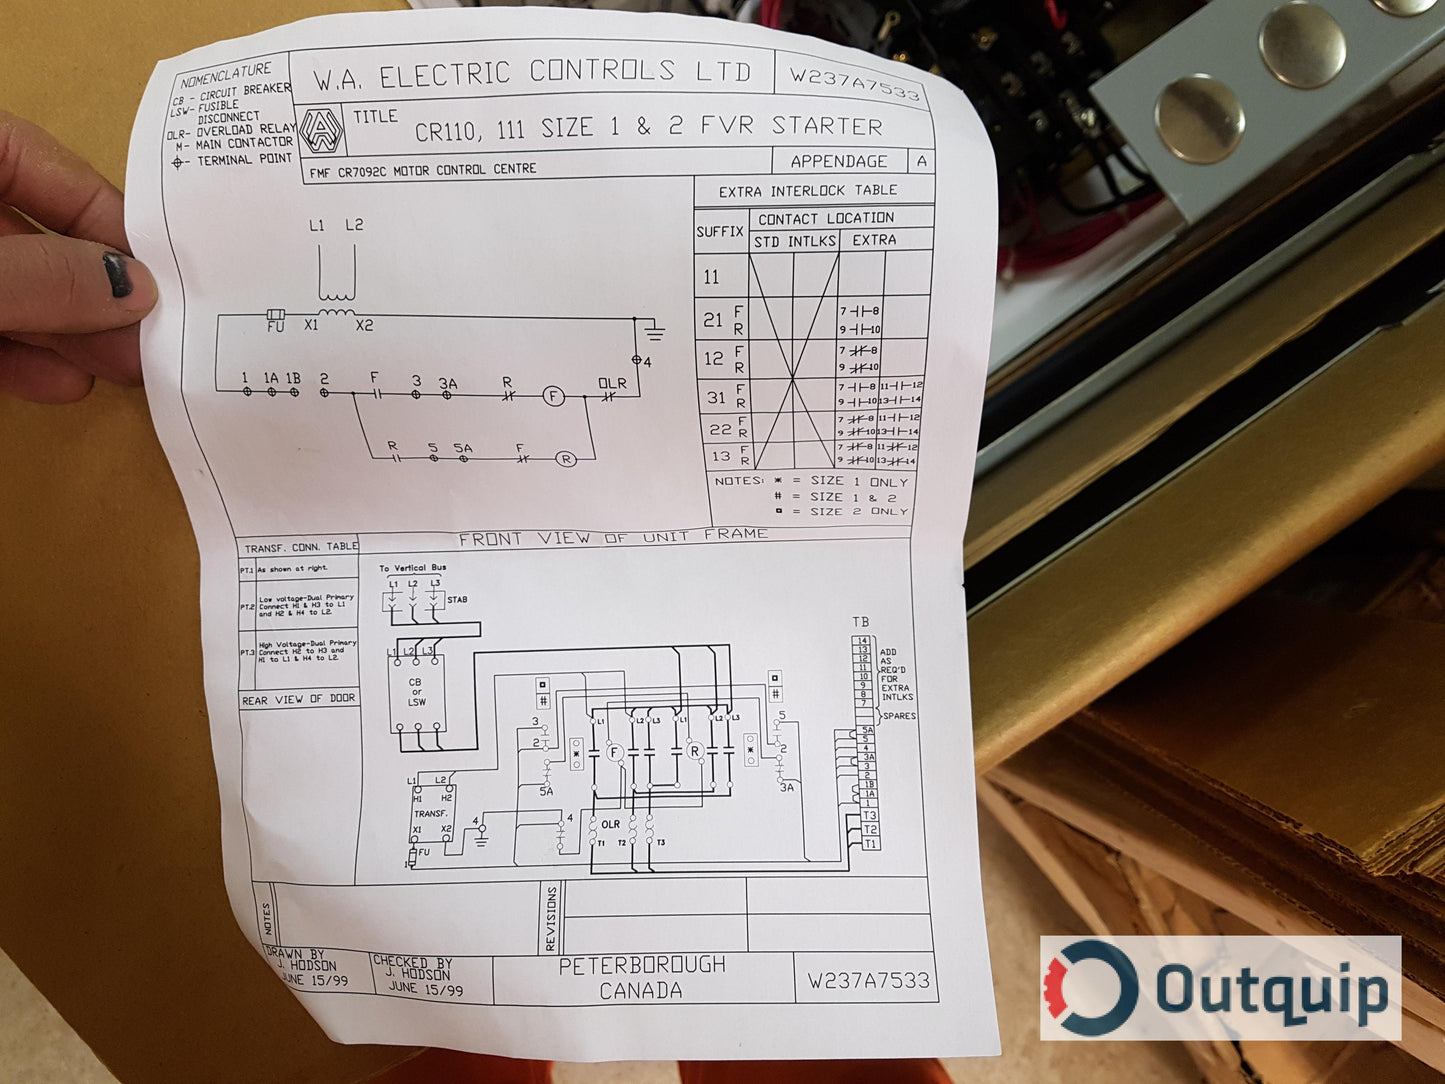 NOMENCLATURE
CB - CIRCUIT BREAKER
LSW- FUSIBLE
DISCONNECT
OLR- OVERLOAD RELAY
M- MAIN CONTACTOR
- TERMINAL POINT
W.A. ELECTRIC CONTROLS LTD
W237A7533
TITLE
CR110, 111 SIZE 1 & 2 FVR STARTER
FMF CR7092C MOTOR CONTROL CENTRE
APPENDAGE A
EXTRA INTERLOCK TABLE
SUFFIX
CONTACT LOCATION
STD INTLKS EXTRA
11
21 F 7 8
R 9 10
12 F 7 8
R 9 10
31 F 7 8 11 12
R 9 10 13 14
22 F 7 8 11 12
R 9 10 13 14
13 F 7 8 11 12
R 9 10 13 14
NOTES: * = SIZE 1 ONLY
# = SIZE 1 & 2
▫ = SIZE 2 ONLY
L1 L2
FU X1 X2
4
1 1A 1B 2 F 3 3A R F OLR
R 5 5A F R
TRANSF. CONN. TABLE
PT.1 As shown at right.
PT.2 Low voltage-Dual Primary
Connect H1 & H3 to L1
and H2 & H4 to L2.
PT.3 High Voltage-Dual Primary
Connect H2 to H3 and
H1 to L1 & H4 to L2.
REAR VIEW OF DOOR
FRONT VIEW OF UNIT FRAME
To Vertical Bus
L1 L2 L3
STAB
L1 L2 L3
CB
or
LSW
▫
#
▫
#
3
2
5A
*
L1 L2 L3 L1 L2 L3
F R
*
5
2
3A
L1 L2
H1 H2
TRANSF.
X1 X2
FU
1
4
4
OLR
T1 T2 T3
TB
14
13
12
11
10
9
8
7
ADD
AS
REQ'D
FOR
EXTRA
INTLKS
SPARES
5A
5
4
3A
3
2
1B
1A
1
T3
T2
T1
NOTES
REVISIONS
DRAWN BY
J. HODSON
JUNE 15/99
CHECKED BY
J. HODSON
JUNE 15/99
PETERBOROUGH
CANADA
W237A7533
Outquip